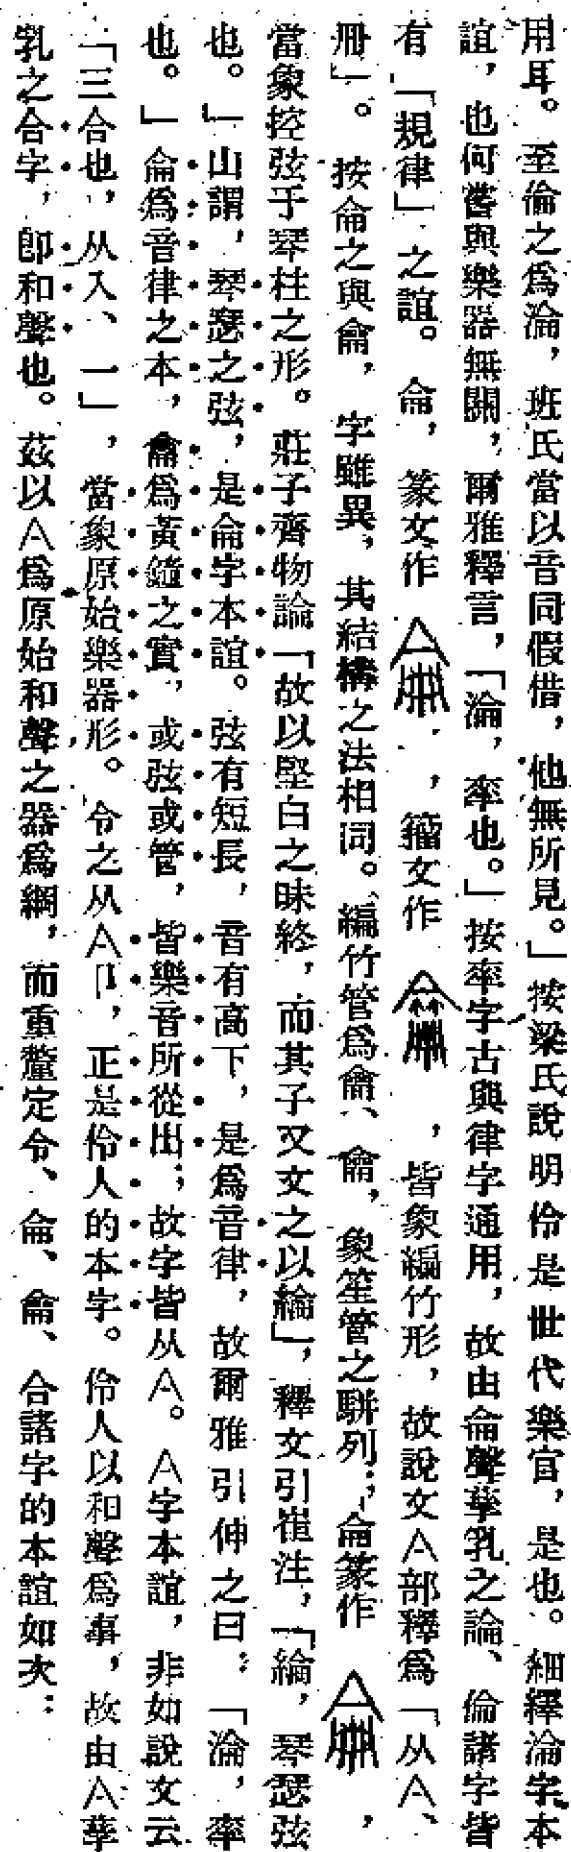 用耳。至倫之爲淪,班氏當以音同假借,他無所見。」按梁氏說明伶是世代樂官,是也。細繹淪字本
誼,也何嘗與樂器無關,爾雅釋言,「淪,率也。」按率字古與律字通用,故由侖聲孳乳之論、倫諸字皆
有「規律」之誼。侖,篆文作,籀文作,皆象編竹形,故說文亼部釋爲「从亼、
冊」。按侖之與龠,字雖異,其結構之法相同。編竹管爲龠、龠,象笙管之駢列;侖篆作,
當象控弦于琴柱之形。莊子齊物論「故以堅白之昧終,而其子又文之以綸」,釋文引崔注,「綸,琴瑟弦
也。」山謂,琴瑟之弦,是侖字本誼。弦有短長,音有高下,是爲音律,故爾雅引伸之曰:「淪,率
也。」侖爲音律之本,龠爲黃鐘之實,或弦或管,皆樂音所從出;故字皆从亼。亼字本誼,非如說文云
「三合也,从入、一」,當象原始樂器形。令之从亼卩,正是伶人的本字。伶人以和聲爲事,故由亼孳
乳之合字,卽和聲也。茲以亼爲原始和聲之器爲綱,而重釐定令、侖、龠、合諸字的本誼如次: